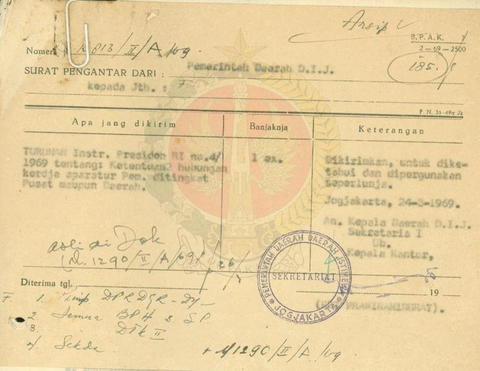 Arsip
B.P.A.K.
2-69-2500
185.
Nomer : K.013/II/A/69
SURAT PENGANTAR DARI : Pemerintah Daerah D.I.J.
kepada Jth. :
P.N.
Apa jang dikirim
Banjaknja
Keterangan
TURUNAN Instr. Presiden RI no.4/
1969 tentang: Ketentuan2 hubungan
kerdja aparatur Pem. ditingkat
Pusat maupun Daerah.
1 ex.
Dikirimkan, untuk dike-
tahui dan dipergunakan
seperlunja.
Jogjakarta, 24-3-1969.
An. Kepala Daerah D.I.J.
Sekretaris I
Ub.
Kepala Kantor,
asli di Dok
1290/II/A/69
PEMERINTAH DAERAH DAERAH ISTIMEWA
SEKRETARIAT
JOGJAKARTA
Diterima tgl.
19
1. Pimp DPRDGR-DIJ
2 Semua BPH & SP
3. Dti II
4) Sekda
1290/II/A/69